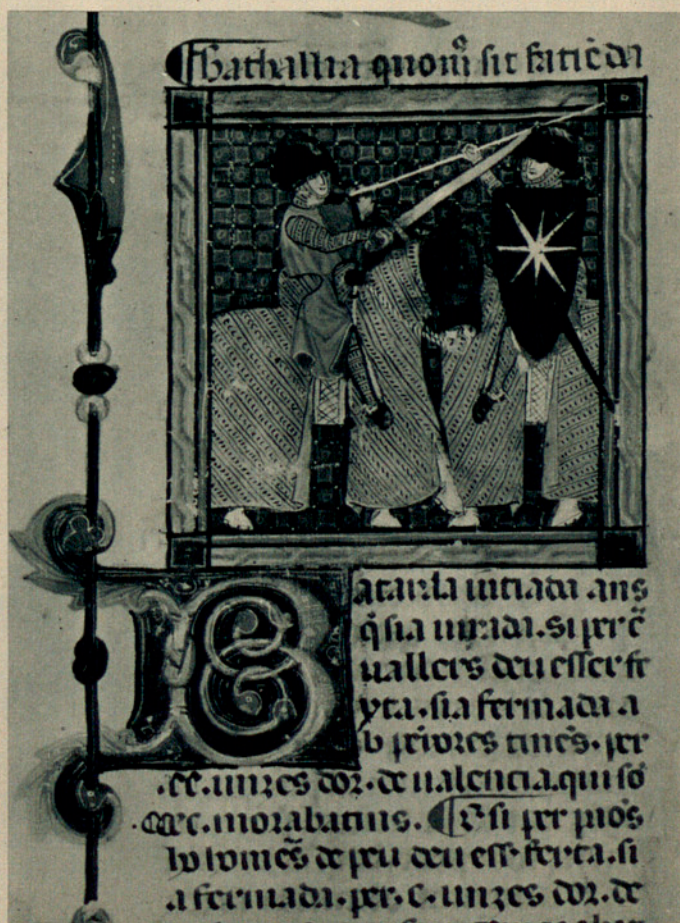 Bathallia quom̃ sit faciẽda
Batayla iutiada ans
q̃ sia iurada. Si per c̃
uallers deu esser fe
yta. sia fermada a
b peiores tineẽs. per
.cc. unzes dor. de ualencia. qui sõ
morabatins. E si per pros
homẽs de peu deu esser feyta. si
a fermada. per. c. unzes dor. de